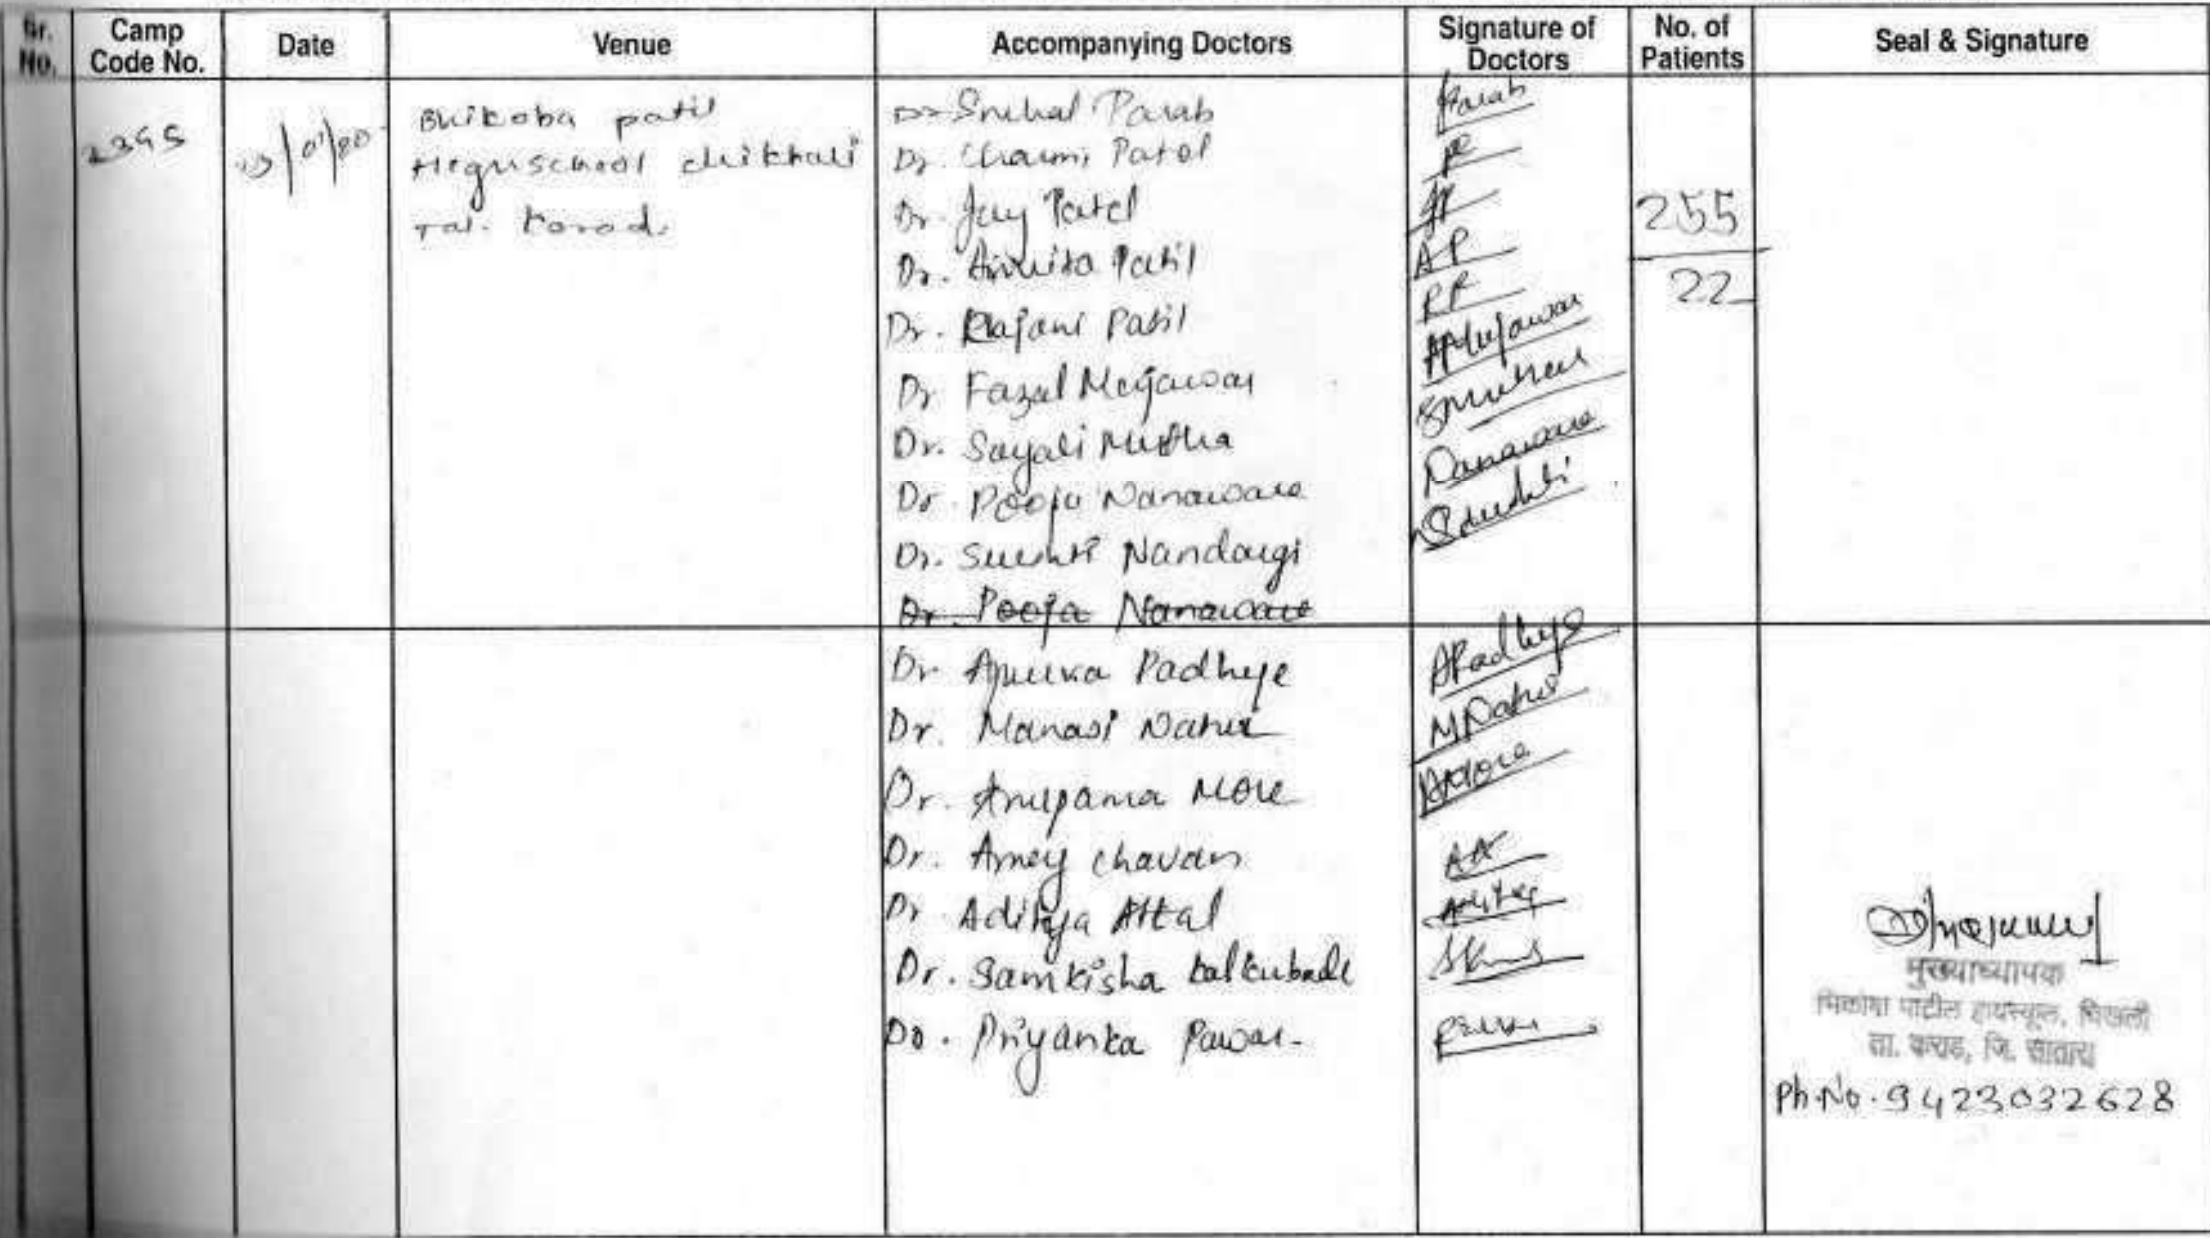 Sr. No.
Camp Code No.
Date
Venue
Accompanying Doctors
Signature of Doctors
No. of Patients
Seal & Signature
2395
Bhikoba patil
Highschool chikhali
Tal. Karad.
Dr Snehal Parab
Dr. Charmi Patel
Dr. Jay Patel
Dr. Amruta Patil
Dr. Rajani Patil
Dr Fazal Mujawar
Dr. Sayali Mutha
Dr. Pooja Nanaware
Dr. Sushti Nandargi
Dr. Pooja Nanaware
Parab
AP
RP
Nanaware
255
22
Dr Apurva Padhye
Dr. Manasi
Dr. Anupama More
Dr. Amey chavan
Dr Aditya Attal
Dr. Samkisha
Dr. Priyanka Pawar
APadhye
AMore
मुख्याध्यापक
भिकोबा पाटील हायस्कूल, चिखली
ता. कराड, जि. सातारा
Ph.No. 9423032628